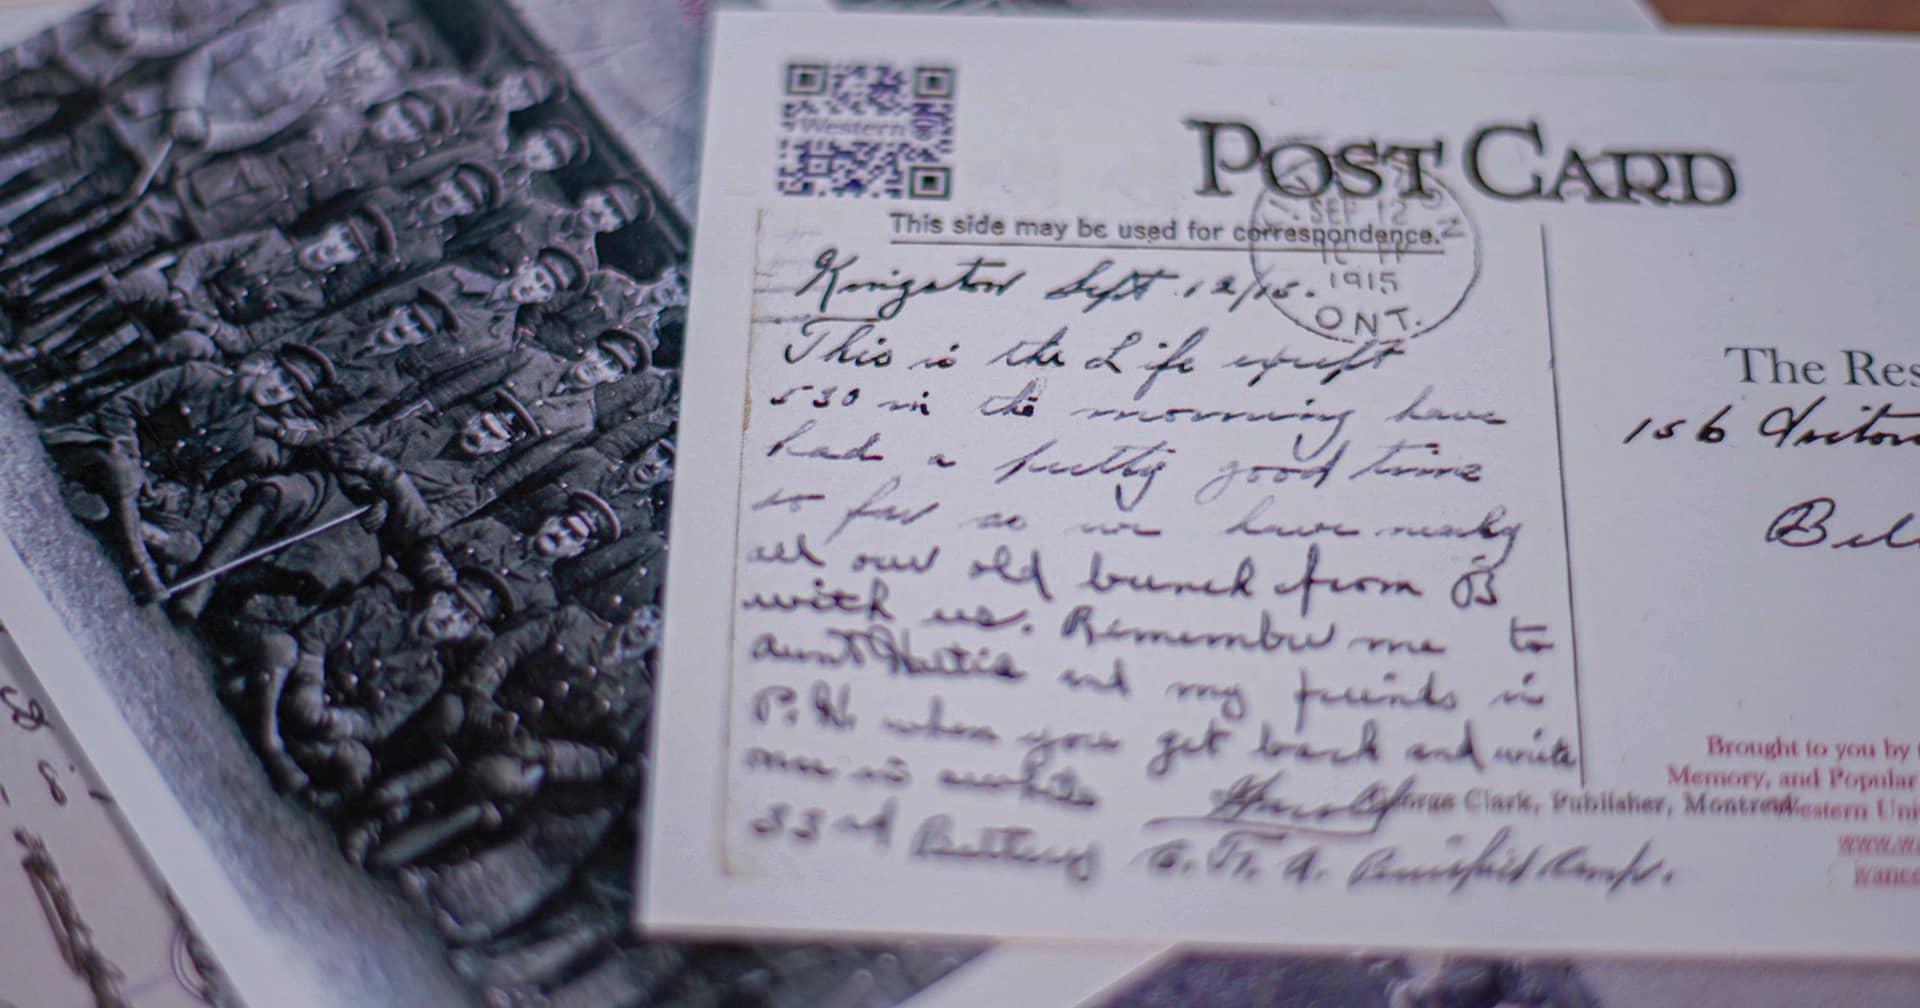 Western
POST CARD
This side may be used for correspondence.
SEP 12
1915
ONT.
Kingston Sept. 12/15.
This is the Life except
530 in the morning have
had a pretty good time
so far as we have nearly
all our old bunch from B
with us. Remember me to
aunt Hattie and my friends in
P. when you get back and write
me in awhile
Harold
33rd Battery C. F. A. Camp.
George Clark, Publisher, Montreal
The Res
156
Bel
Brought to you by
Memory, and Popular
Western Uni
www.w